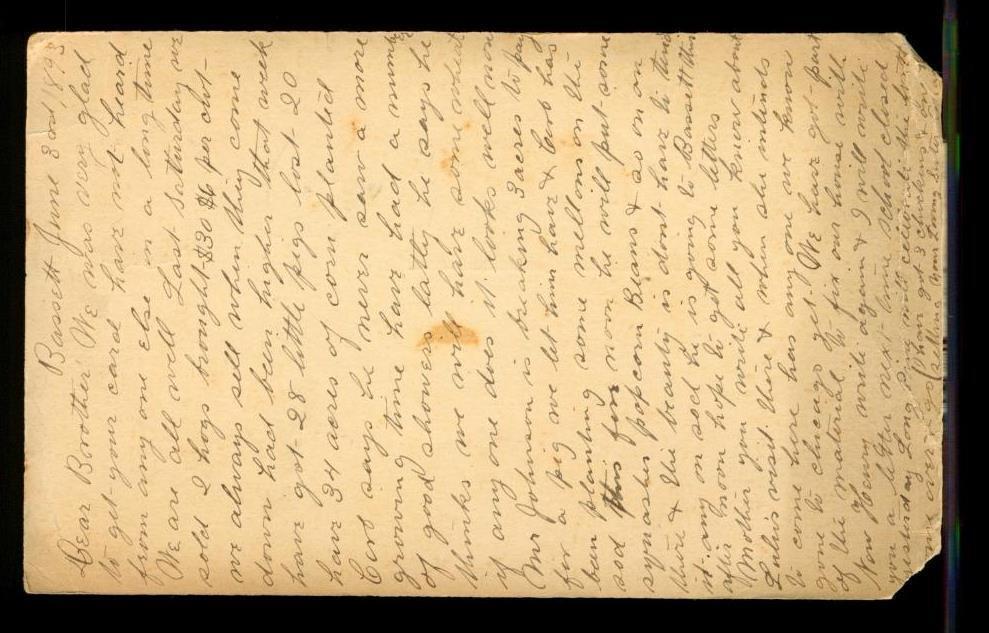 Bassett June 3rd, 1893
Dear Brother We was very glad
to get your card have not heard
from any one else in a long time
We are all well Last Saturday we
sold 2 hogs brought $30 $6 per cwt-
we always sell when they come
down had been higher that week
have got 28 little pigs lost 20
have 34 acres of corn planted
Cob says he never saw a more
growing time have had a number
of good showers latly he says he
thinks we will have some wheat
if any one does it looks well now
Mr Johnson is breaking 3 acres to pay
for a pig we let him have & Cob has
ben planting some mellons on the
sod this fore noon he will put some
squashes popcorn Beans & so on on
there & the beauty is dont have to tend
it any on sod he is going to Bassett this
after noon hope to get some letters
Mother you write all you know about
Lulus visit there & when she intends
to come here has any one we know
gone to chicago yet We have got part
of the material to fix our house with
Now Henry write again & I will write
you a letter next time school closed
yesterday